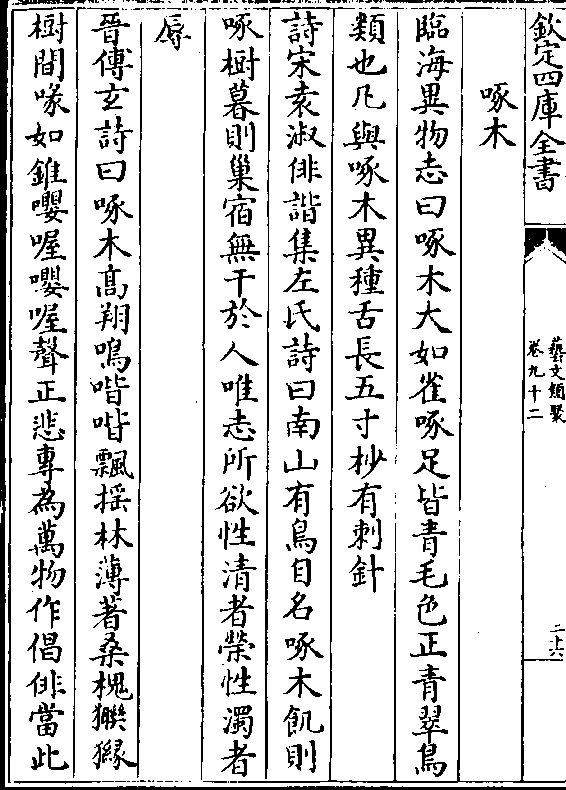 欽定四庫全書
藝文類聚
卷九十二
二十六
啄木
臨海異物志曰啄木大如雀啄足皆青毛色正青翠鳥
類也凡與啄木異種舌長五寸杪有刺針
詩宋袁淑俳諧集左氏詩曰南山有鳥自名啄木飢則
啄樹暮則巢宿無干於人唯志所欲性清者榮性濁者
辱
晉傅玄詩曰啄木高翔鳴喈喈飄揺林薄著桑槐㺦緣
樹間喙如錐嚶喔嚶喔聲正悲專為萬物作倡俳當此